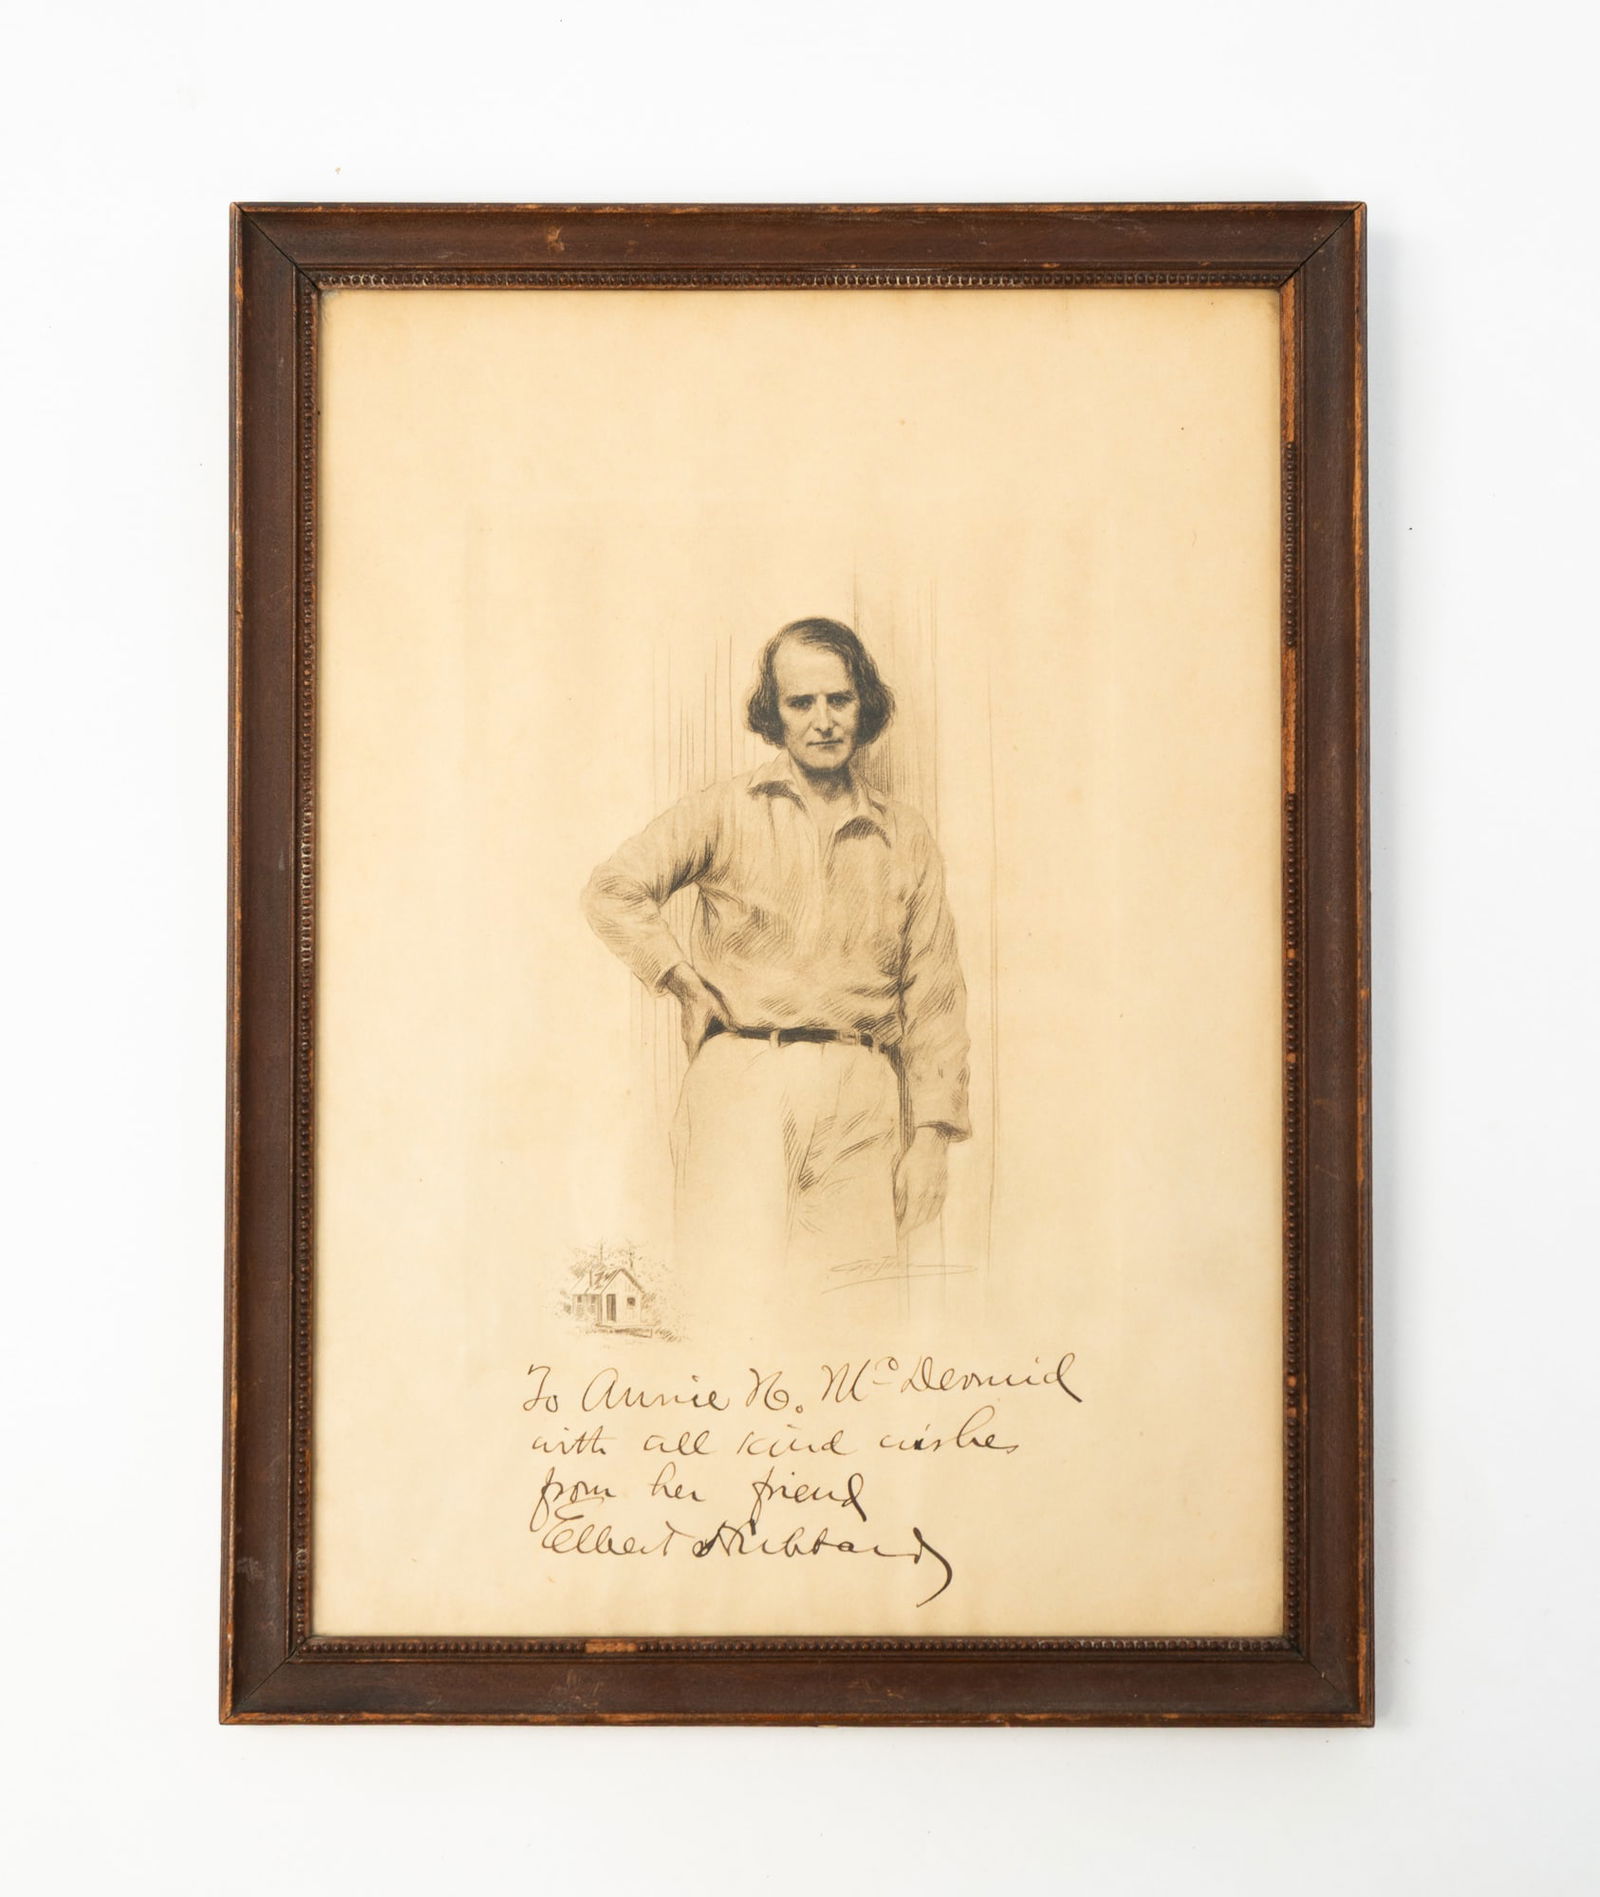 To Annie H. McDermid
with all kind wishes
from her friend
Elbert Hubbard